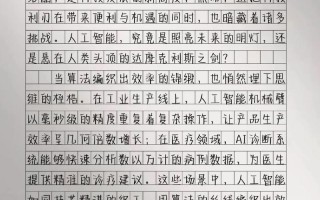 利刃在带来便利与机遇的同时，也暗藏着诸多
挑战。人工智能，究竟是照亮未来的明灯，还
是悬在人类头顶的达摩克利斯之剑？
当算法编织出效率的锦缎，也悄然埋下思
维的桎梏。在工业生产线上，人工智能机械臂
以毫秒级的精度重复着复杂操作，让产品生产
效率呈几何倍数增长；在医疗领域，AI诊断系
统能够快速分析数以万计的病例数据，为医生
提供精准的诊疗建议。这些场景中，人工智能